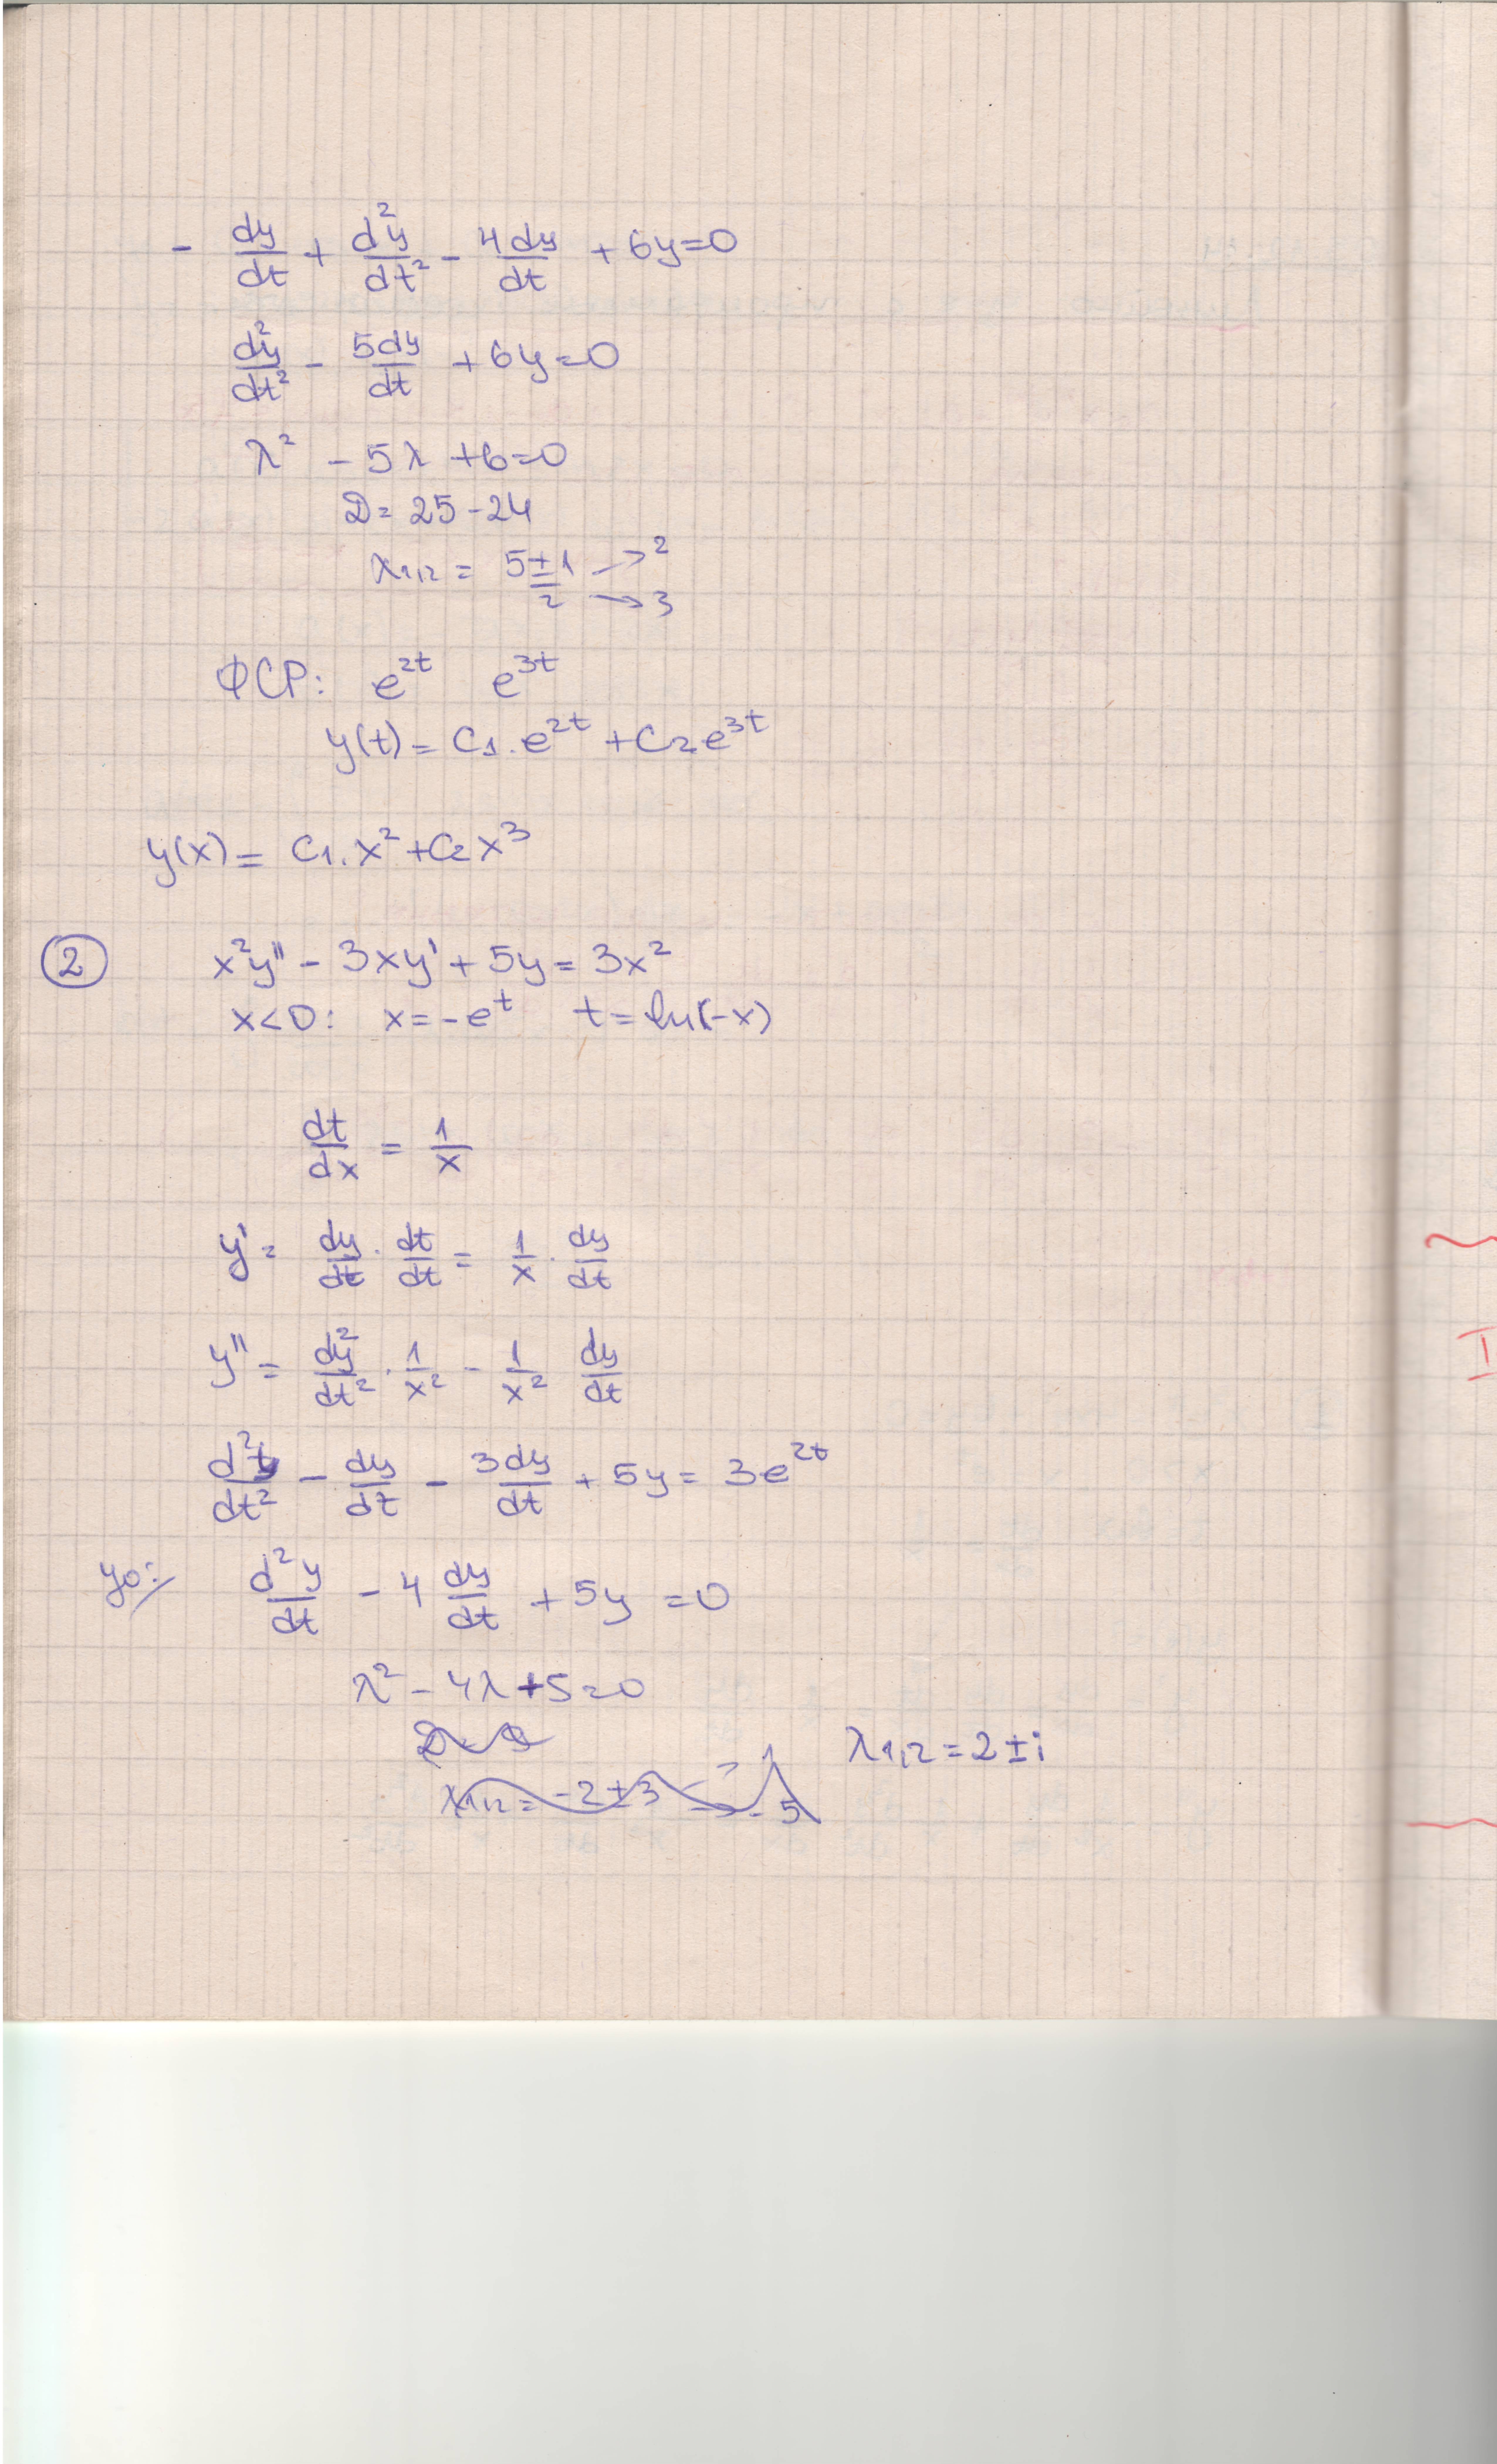 - dy/dt + d²y/dt² - 4dy/dt + 6y=0
d²y/dt² - 5dy/dt + 6y=0
λ² - 5λ +6=0
D= 25-24
λ1,2 = 5±1/2 → 2 → 3
ФСР: e^2t e^3t
y(t) = C1·e^2t + C2e^3t
y(x) = C1·x² + C2x³
2 x²y'' - 3xy' + 5y = 3x²
x<0: x=-e^t t=ln(-x)
dt/dx = 1/x
y' = dy/dt · dt/dt = 1/x · dy/dt
y'' = dy²/dt² · 1/x² - 1/x² dy/dt
d²y/dt² - dy/dt - 3dy/dt + 5y = 3e^2t
y0: d²y/dt - 4 dy/dt + 5y = 0
λ² - 4λ + 5=0
λ1,2 = 2±i
λ1,2 = -2±3 → 1 → -5
I